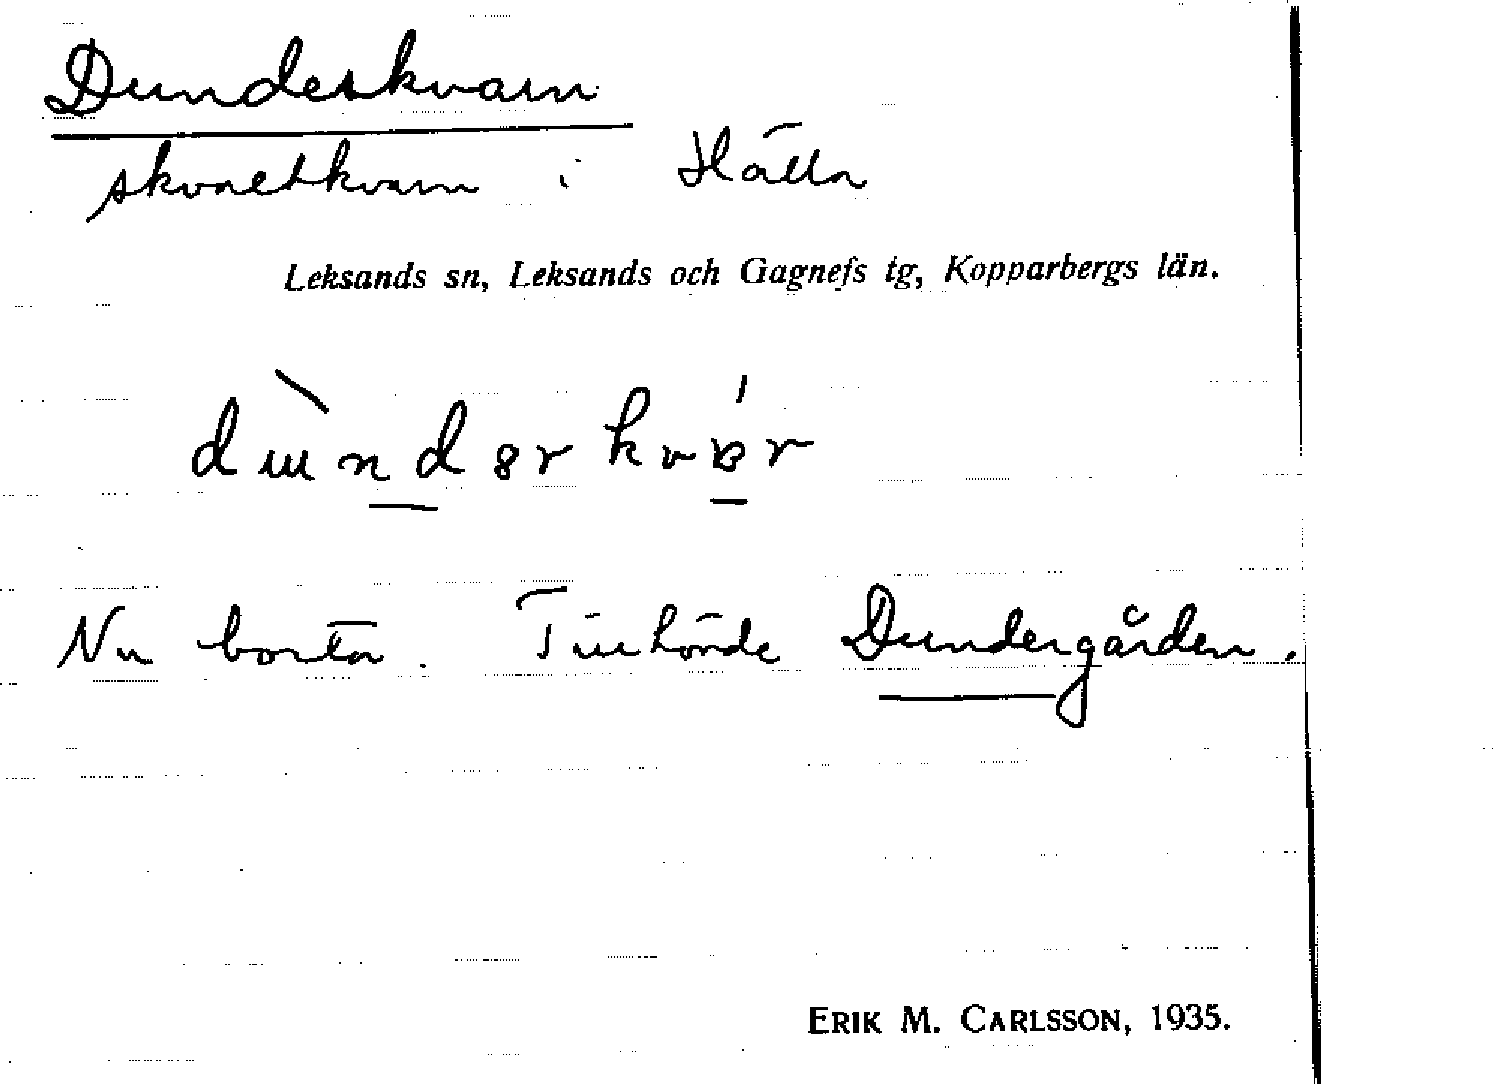 Dunderkvarn
skvaltkvarn i Hälla
Leksands sn, Leksands och Gagnefs tg, Kopparbergs län.
Nu borta. Tillhörde Dundergården.
ERIK M. CARLSSON, 1935.